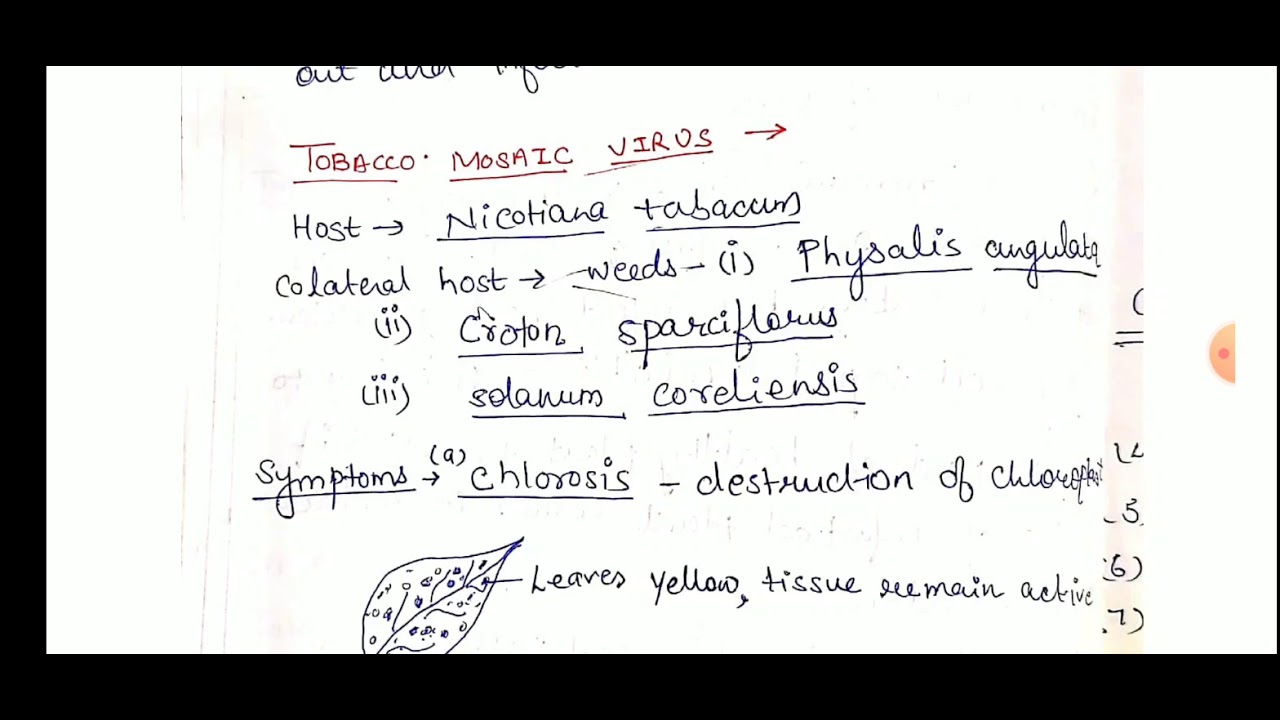 out and
TOBACCO. MOSAIC VIRUS →
Host → Nicotiana tabacum
Colateral host → weeds - (i) Physalis angulata
(ii) Croton sparciflorus
(iii) solanum coreliensis
Symptoms → (a) Chlorosis - destruction of chloroplast
Leaves yellow, tissue remain active
5
6)
7)